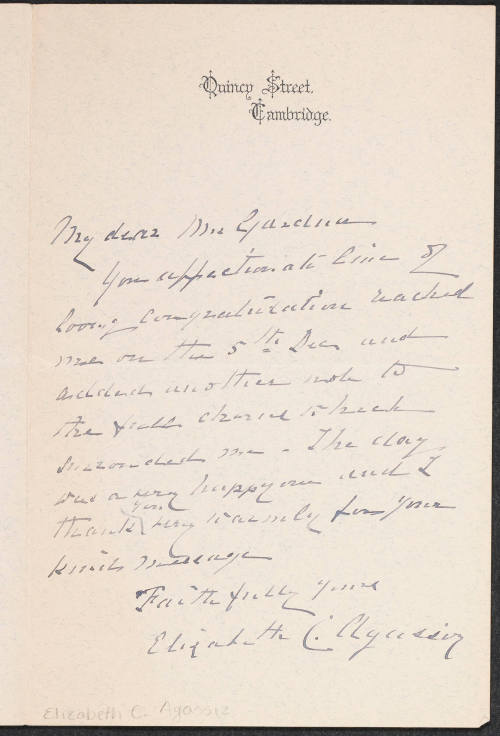 Quincy Street,
Cambridge.
My dear Mrs Gardner
Your affectionate line of
loving congratulation reached
me on the 5th Dec and
added another note to
the full chorus which
surrounded me - The day
was a very happy one and I
thank you very warmly for your
kind message
Faithfully yours
Elizabeth C. Agassiz
Elizabeth C. Agassiz